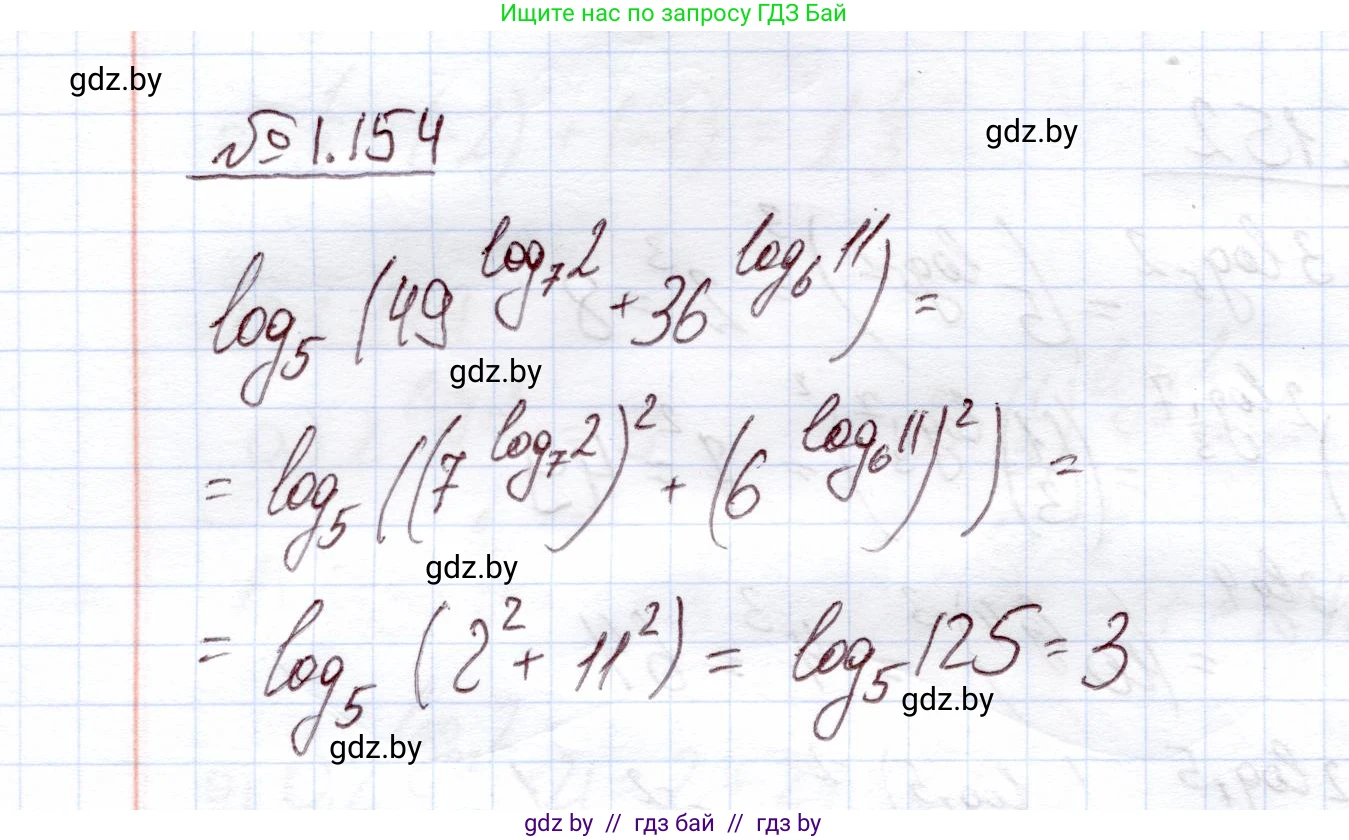 Ищите нас по запросу ГДЗ Бай
gdz.by
№ 1.154
gdz.by
log₅ (49^(log₇2) + 36^(log₆11)) =
gdz.by
= log₅ ((7^(log₇2))² + (6^(log₆11))²) =
gdz.by
= log₅ (2² + 11²) = log₅ 125 = 3
gdz.by
gdz.by
gdz by // гдз бай // гдз by